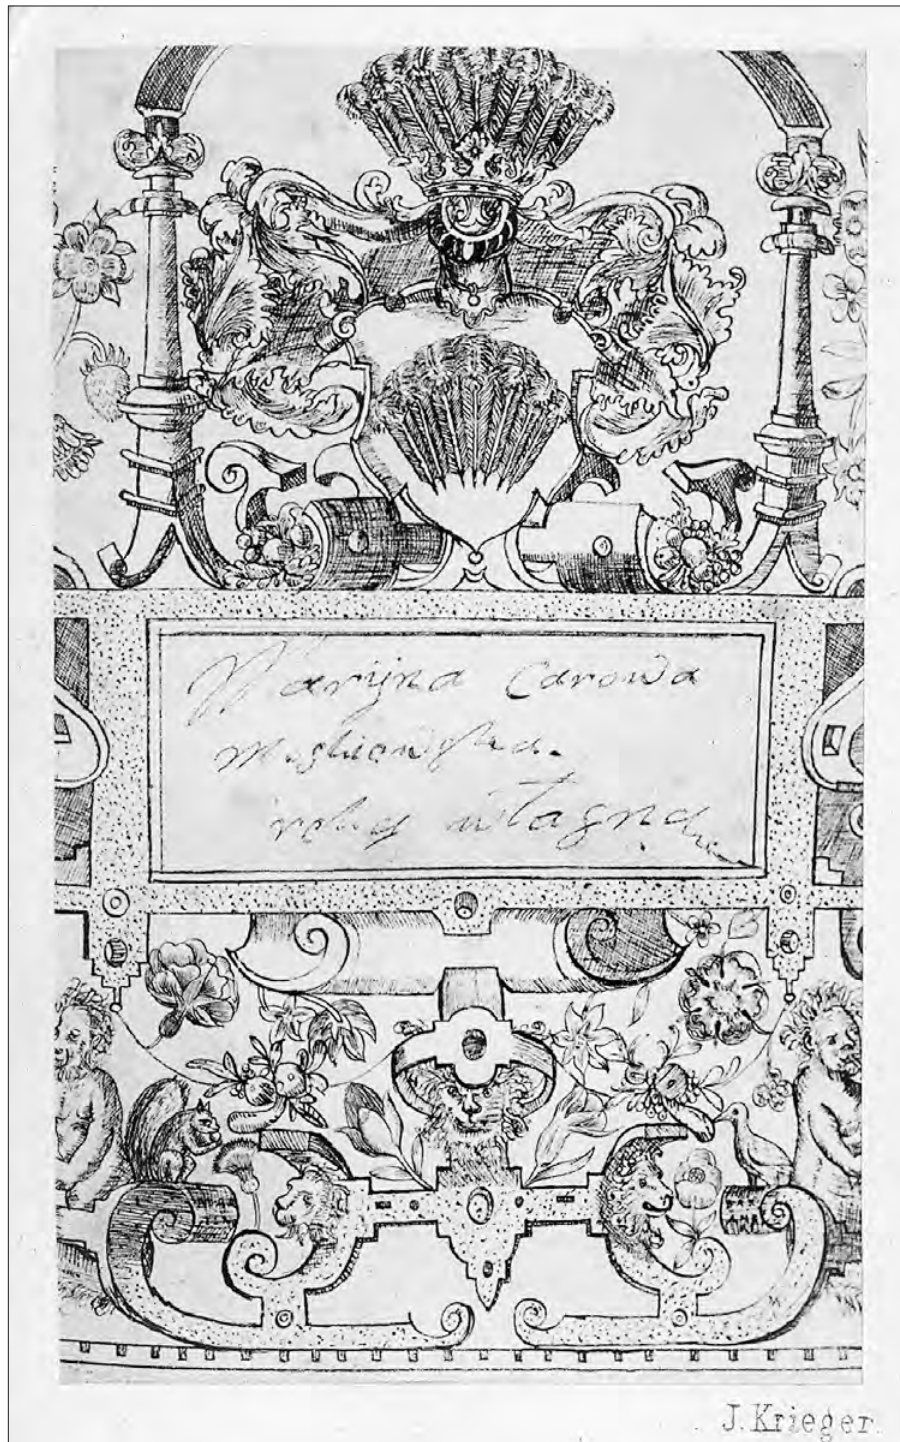 Maryna Carowa
Moskiewska.
ręką własną
J. Krieger.